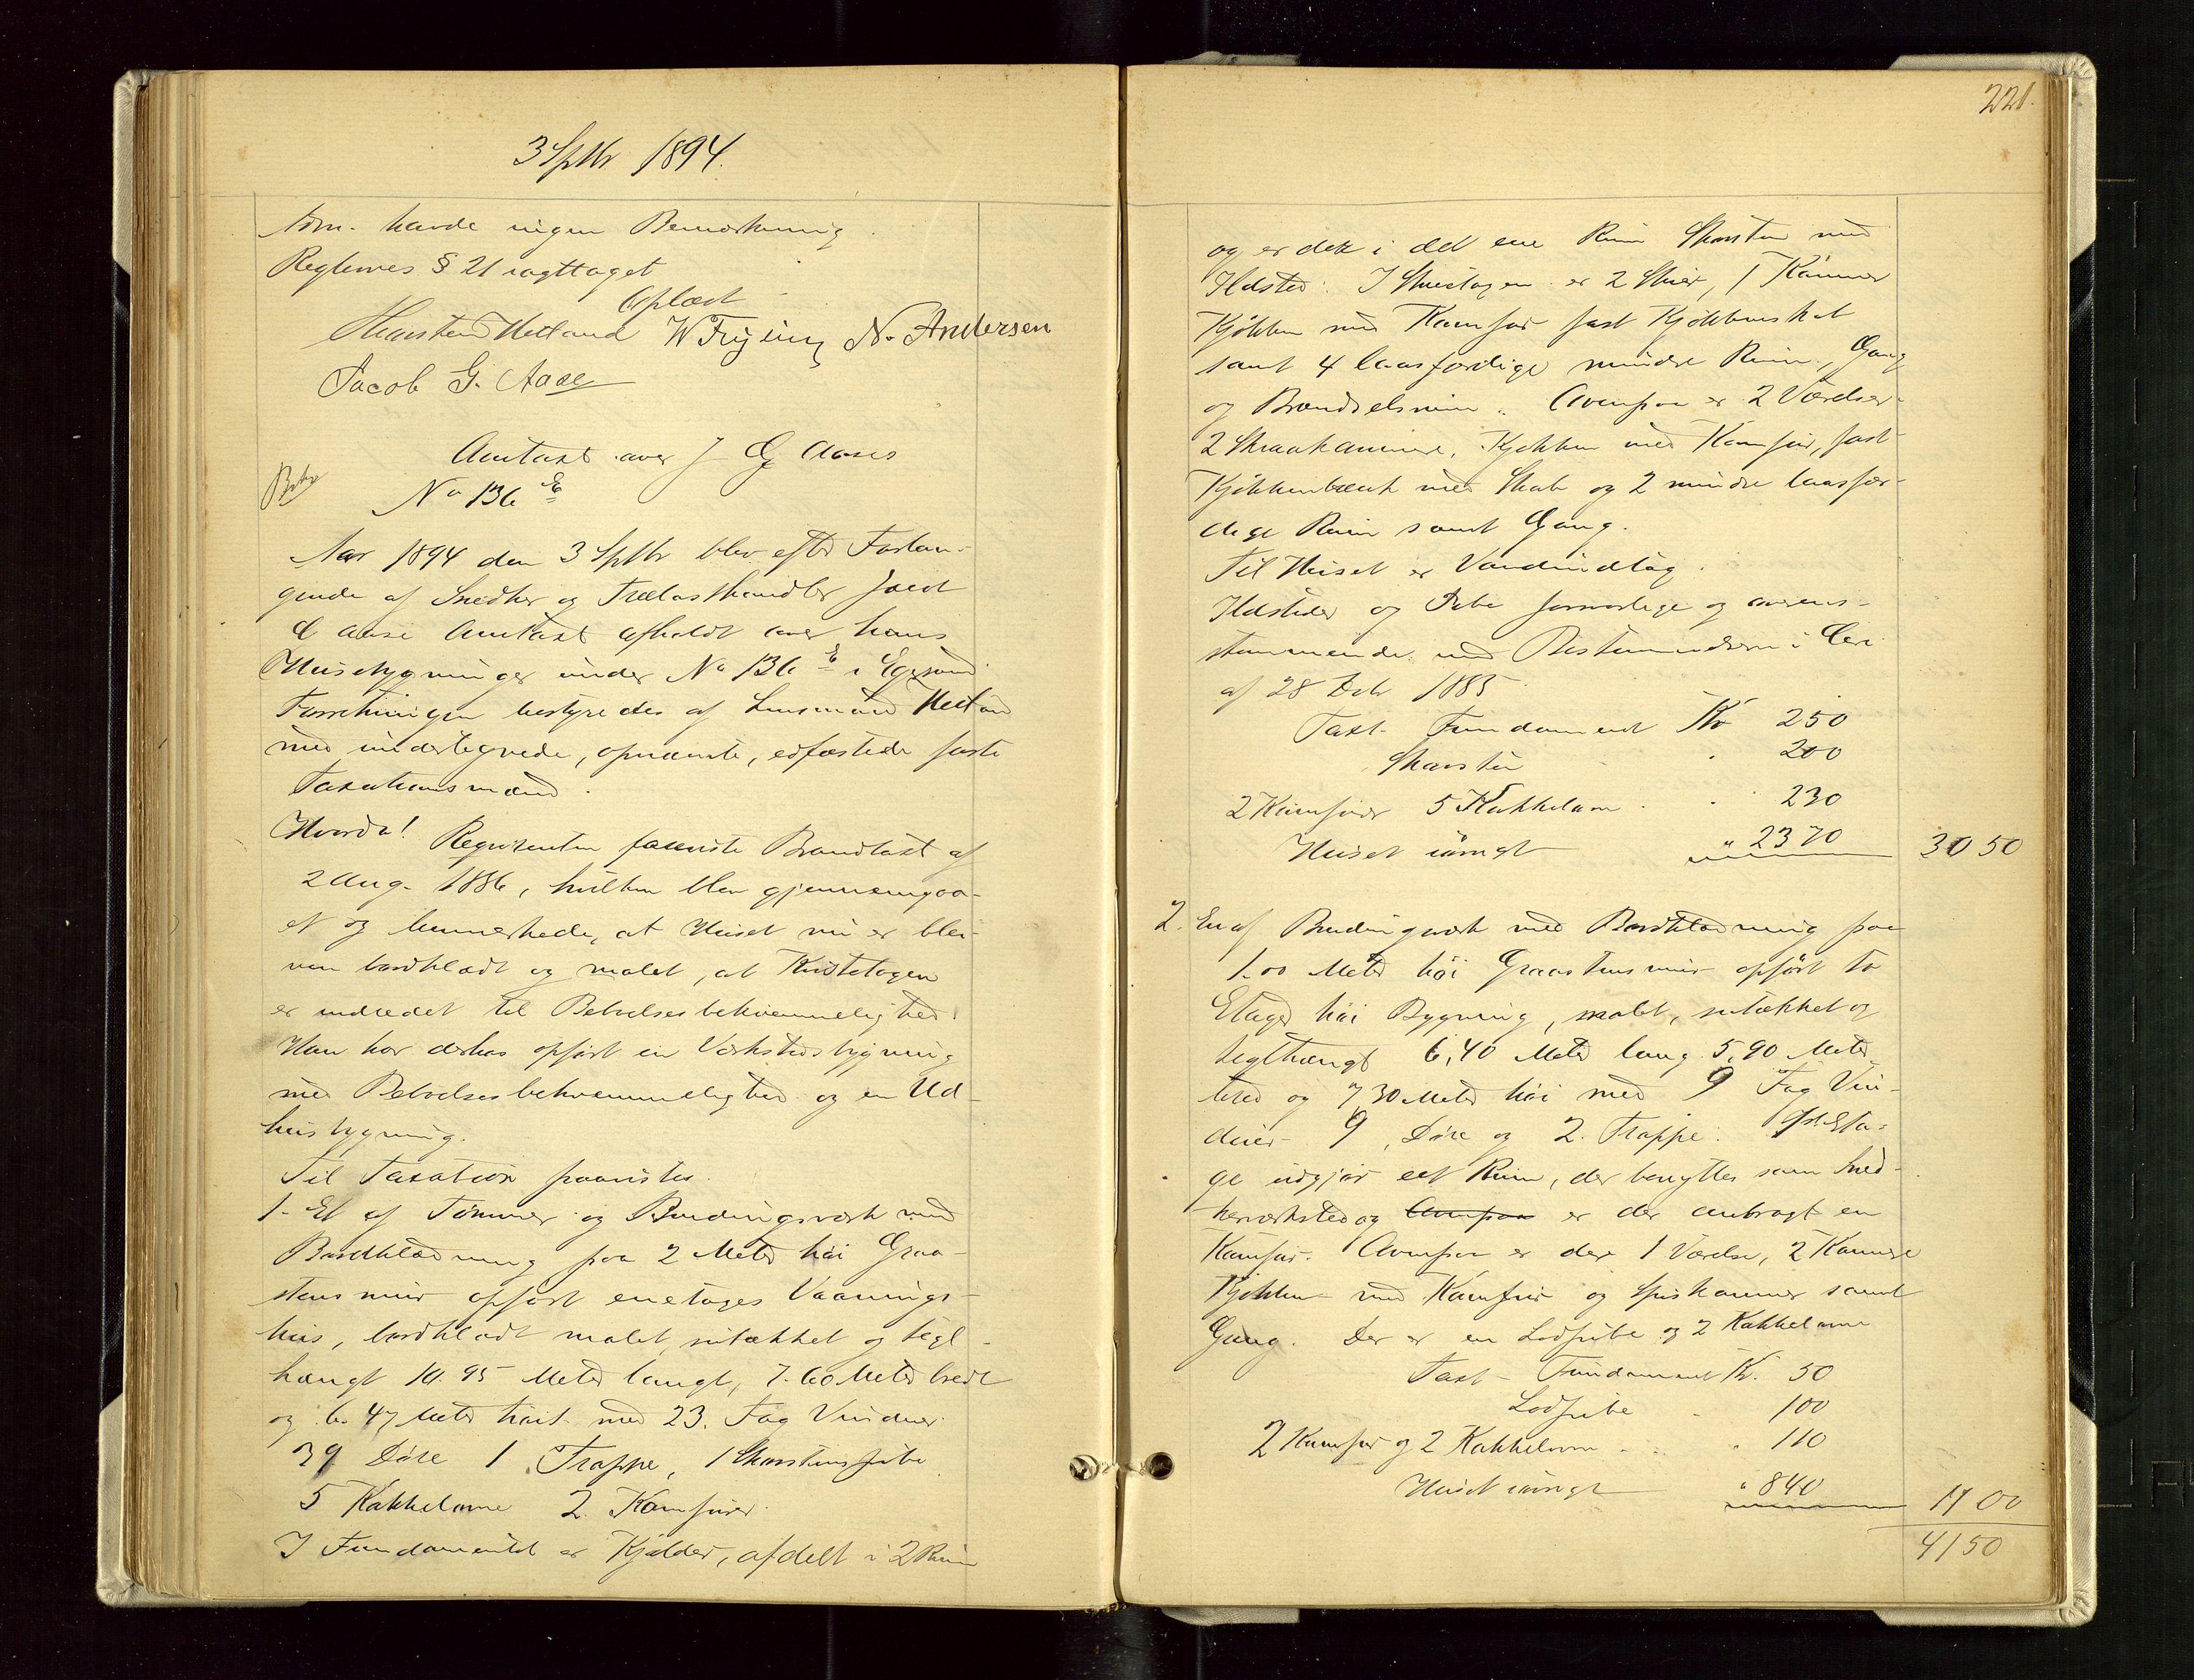 3 Sptbr 1894.
havde ingen Bemærkning.
Reglernes § 21 iagttaget
Oplæst
Thorsten Hetland W Frijling N. Andersen
Jacob G. Aase
Omtaxt over J G Aases
No 136 E
Aar 1894 den 3 Sptbr blev efter Forlan-
gende af Snedker og Trælasthandler Jacob
G Aase Omtaxt afholdt over hans
Husebygninger under No 136 E i Egersund
Forretningen bestyredes af Lensmand Hetland
med undertegnede, opnævnte, edfæstede faste
Taxationsmænd.
Hvorda! Rekvirenten foreviste Brandtaxt af
2 Aug. 1886, hvilken blev gjennemgaa-
et og bemærkede, at Huset nu er ble-
ven bordklædt og malet, at Kvistetagen
er indredet til Beboelsesbekvemmelighed.
Han har derhos opført en Værkstedsbygning
med Beboelsesbekvemmelighed og en Ud-
husbygning.
Til Taxation paavistes.
1. Et af Tømmer og Bindingsværk med
Bordklædning paa 2 Meter høi Graa-
stensmur opført enetages Vaanings-
hus, bordklædt malet, sutækket og tegl-
hængt 10.95 Meter langt, 7.60 Meter bredt
og 6.47 Meter høit med 23 Fag Vinduer
39 Døre 1 Trappe, 1 Skorstenspibe
5 Kakkelovne 2 Komfurer.
I Fundamentet er Kjælder, afdelt i 2 Rum
221.
og er der i det ene Rum Skorsten med
Ildsted. I Stuetagen er 2 Stuer, 1 Kammer
Kjøkken med Komfur fast Kjøkkenskab
samt 4 laasfærdige mindre Rum, Gang
og Brændselsrum. Ovenpaa er 2 Værelser
2 Skraakammere, Kjøkken med Komfur, fast
Kjøkkenbænk med Skab og 2 mindre laasfær-
dige Rum samt Gang.
Til Huset er Vandindlæg.
Ildsteder og Pibe forsvarlige og overens-
stemmende med Bestemmelserne i
af 28 1885
Taxt Fundament Kr 250
Skorsten 200
2 Komfurer 5 Kakkelovne 230
Huset iøvrigt " 2370 3050
2. En af Bindingsværk med Bordklædning paa
1.00 Meter høi Graastensmur opført to
Etager høi Bygning, malet, sutækket og
teglhængt 6,40 Meter lang 5.90 Meter
bred og 7 30 Meter høi med 9 Fag Vin-
duer 9 Døre og 2 Trappe.
ge udgjør eet Rum, der benyttes som Sned-
kerværksted og Ovenpaa er der anbragt en
Komfur. Ovenpaa er der 1 Værelse, 2 Kammere
Kjøkken med Komfur og Spiskammer samt
Gang. Der er en Lodpibe og 2 Kakkelovne
Taxt Fundament Kr. 50
Lodpibe 100
2 Komfur og 2 Kakkelovne " 110
Huset iøvrigt " 840 1100
4150